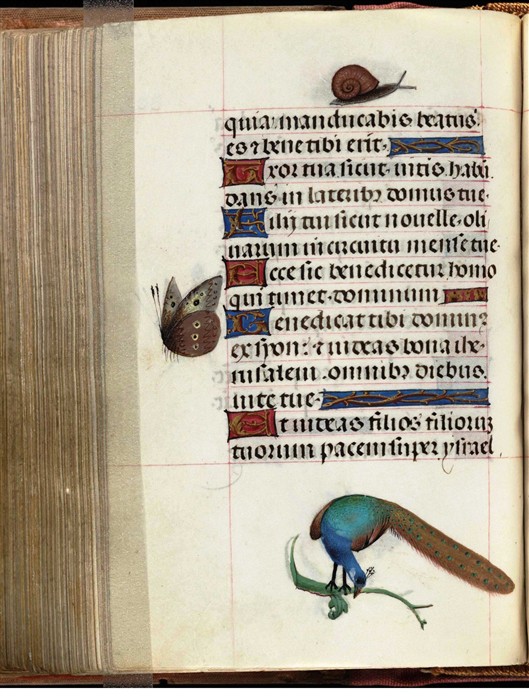 quia manducabis beatus
es ⁊ bene tibi erit.
Uxor tua sicut uitis habū
dans in lateribꝫ domus tue.
Filij tui sicut nouelle oli
uarum in circuitu mense tue.
Ecce sic benedicetur homo
qui timet dominum
Benedicat tibi dominꝰ
ex syon: et uideas bona ihe-
rusalem. omnibꝫ diebus.
uite tue.
Et uideas filios filiorum
tuorum pacem super ysrael